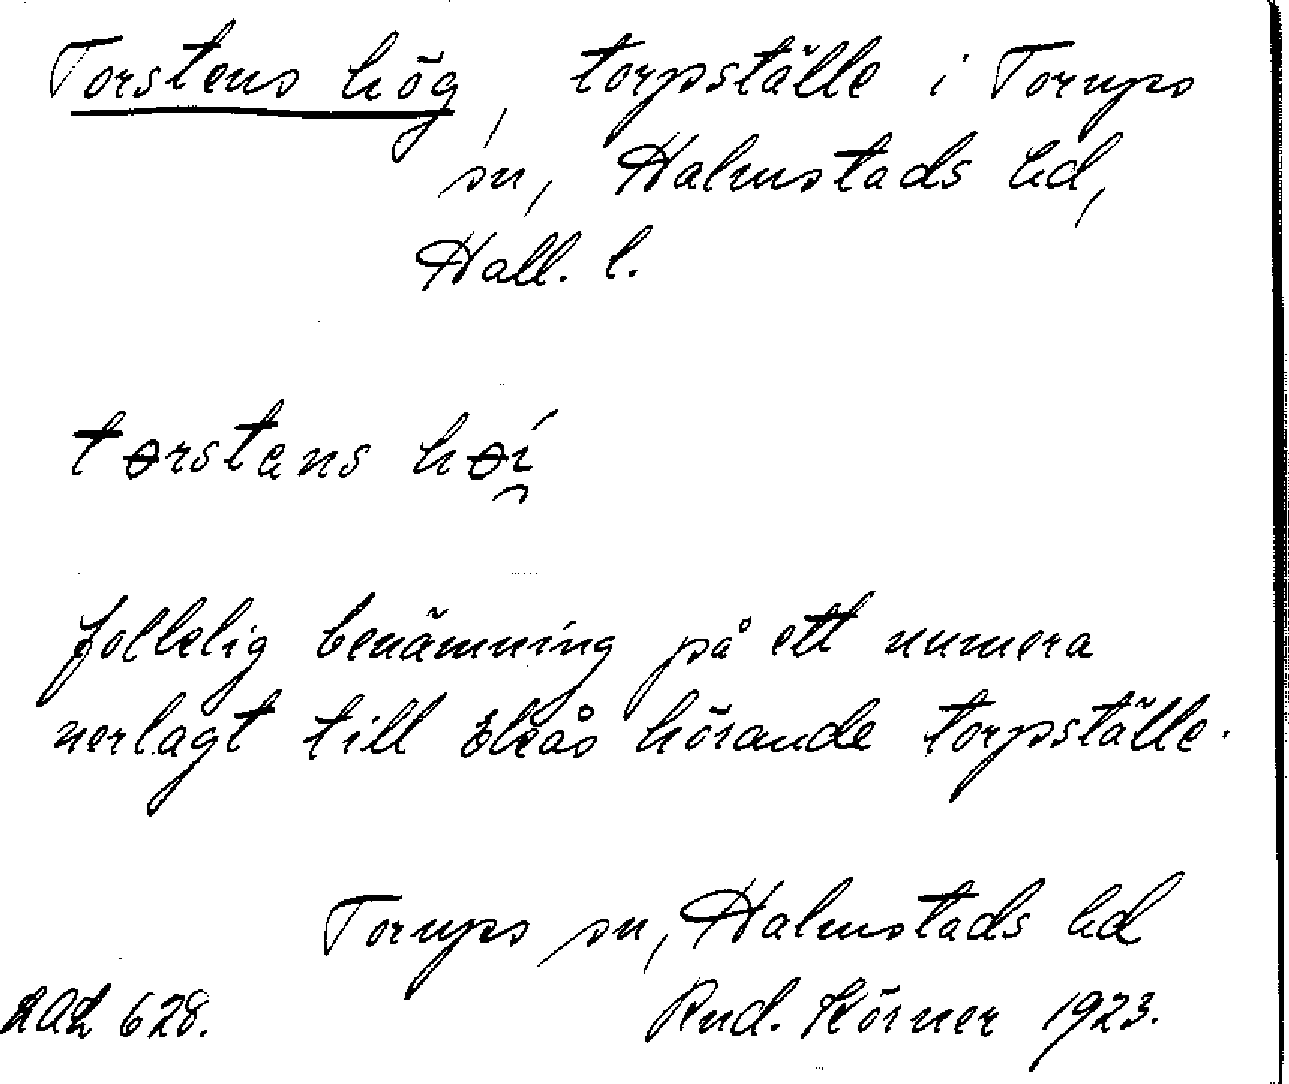 Torstens hög, torpställe i Torups
sn, Halmstads hd,
Hall. l.
tɵrstens hɵi̯
folklig benämning på ett numera
nerlagt till Ekås hörande torpställe.
Torups sn, Halmstads hd
LAL 628.
Rud. Körner 1923.